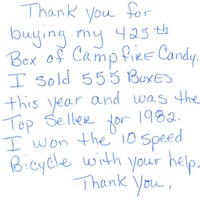 Thank you for
buying my 425th
Box of Campfire Candy.
I sold 555 Boxes
this year and was the
Top Seller for 1982.
I won the 10 speed
Bicycle with your help.
Thank You,